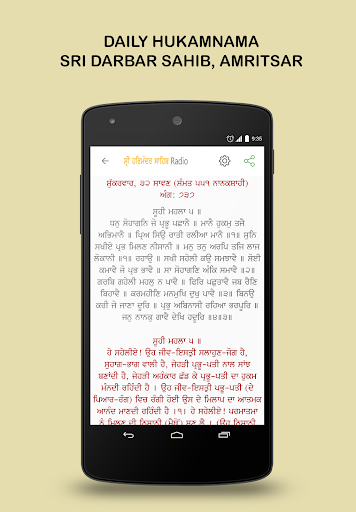 DAILY HUKAMNAMA
SRI DARBAR SAHIB, AMRITSAR
9:36
ਸ਼੍ਰੀ ਹਰਿਮੰਦਰ ਸਾਹਿਬ Radio
ਸ਼ੁੱਕਰਵਾਰ, ੩੨ ਸਾਵਣ (ਸੰਮਤ ੫੫੧ ਨਾਨਕਸ਼ਾਹੀ)
ਅੰਗ: ੭੩੭
ਸੂਹੀ ਮਹਲਾ ੫ ॥
ਧਨੁ ਸੋਹਾਗਨਿ ਜੋ ਪ੍ਰਭੂ ਪਛਾਨੈ ॥ ਮਾਨੈ ਹੁਕਮੁ ਤਜੈ
ਅਭਿਮਾਨੈ ॥ ਪ੍ਰਿਅ ਸਿਉ ਰਾਤੀ ਰਲੀਆ ਮਾਨੈ ॥੧॥ ਸੁਨਿ
ਸਖੀਏ ਪ੍ਰਭ ਮਿਲਣ ਨੀਸਾਨੀ ॥ ਮਨੁ ਤਨੁ ਅਰਪਿ ਤਜਿ ਲਾਜ
ਲੋਕਾਨੀ ॥੧॥ ਰਹਾਉ ॥ ਸਖੀ ਸਹੇਲੀ ਕਉ ਸਮਝਾਵੈ ॥ ਸੋਈ
ਕਮਾਵੈ ਜੋ ਪ੍ਰਭ ਭਾਵੈ ॥ ਸਾ ਸੋਹਾਗਣਿ ਅੰਕਿ ਸਮਾਵੈ ॥੨॥
ਗਰਬਿ ਗਹੇਲੀ ਮਹਲੁ ਨ ਪਾਵੈ ॥ ਫਿਰਿ ਪਛੁਤਾਵੈ ਜਬ ਰੈਣਿ
ਬਿਹਾਵੈ ॥ ਕਰਮਹੀਣਿ ਮਨਮੁਖਿ ਦੁਖੁ ਪਾਵੈ ॥੩॥ ਬਿਨਉ
ਕਰੀ ਜੇ ਜਾਣਾ ਦੂਰਿ ॥ ਪ੍ਰਭੁ ਅਬਿਨਾਸੀ ਰਹਿਆ ਭਰਪੂਰਿ ॥
ਜਨੁ ਨਾਨਕੁ ਗਾਵੈ ਦੇਖਿ ਹਦੂਰਿ ॥੪॥੩॥
ਸੂਹੀ ਮਹਲਾ ੫ ॥
ਹੇ ਸਹੇਲੀਏ! ਉਹ ਜੀਵ-ਇਸਤ੍ਰੀ ਸਲਾਹੁਣ-ਜੋਗ ਹੈ,
ਸੁਹਾਗ-ਭਾਗ ਵਾਲੀ ਹੈ, ਜੇਹੜੀ ਪ੍ਰਭੂ-ਪਤੀ ਨਾਲ ਸਾਂਝ
ਬਣਾਂਦੀ ਹੈ, ਜੇਹੜੀ ਅਹੰਕਾਰ ਛੱਡ ਕੇ ਪ੍ਰਭੂ-ਪਤੀ ਦਾ ਹੁਕਮ
ਮੰਨਦੀ ਰਹਿੰਦੀ ਹੈ। ਉਹ ਜੀਵ-ਇਸਤ੍ਰੀ ਪ੍ਰਭੂ-ਪਤੀ (ਦੇ
ਪਿਆਰ-ਰੰਗ) ਵਿਚ ਰੰਗੀ ਹੋਈ ਉਸ ਦੇ ਮਿਲਾਪ ਦਾ ਆਤਮਕ
ਆਨੰਦ ਮਾਣਦੀ ਰਹਿੰਦੀ ਹੈ ।੧। ਹੇ ਸਹੇਲੀਏ! ਪਰਮਾਤਮਾ
ਨੂੰ ਮਿਲਣ ਦੀ ਨਿਸ਼ਾਨੀ (ਮੈਥੋਂ) ਸੁਣ ਲੈ । (ਉਹ ਨਿਸ਼ਾਨੀ